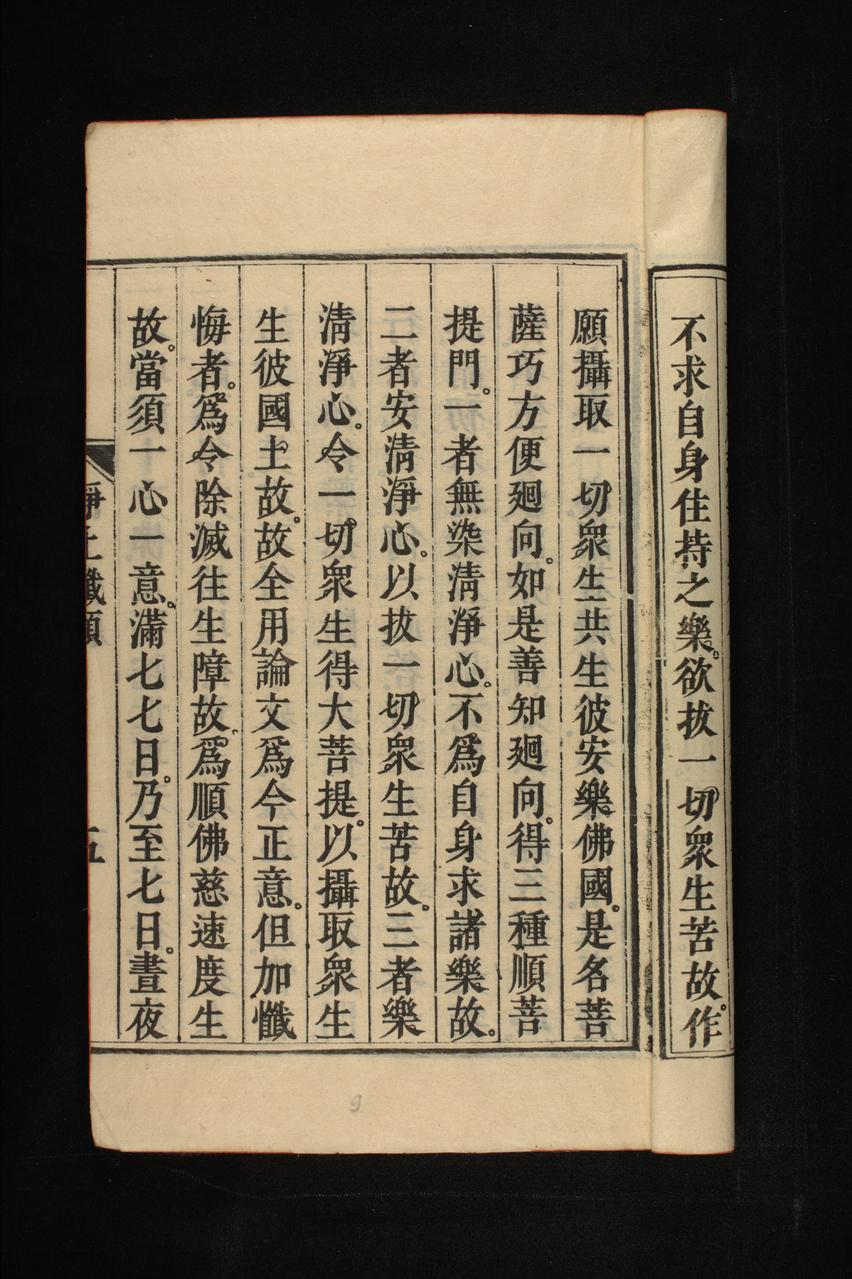 不求自身住持之樂。欲拔一切衆生苦故。作
願攝取一切衆生共生彼安樂佛國。是名菩
薩巧方便廻向。如是善知廻向。得三種順菩
提門。一者無染淸淨心。不爲自身求諸樂故。
二者安淸淨心。以拔一切衆生苦故。三者樂
淸淨心。令一切衆生得大菩提。以攝取衆生
生彼國土故。故全用論文爲今正意。但加懺
悔者。爲令除滅往生障故。爲順佛慈速度生
故。當須一心一意。滿七七日。乃至七日。晝夜
淨土懺願
五
9